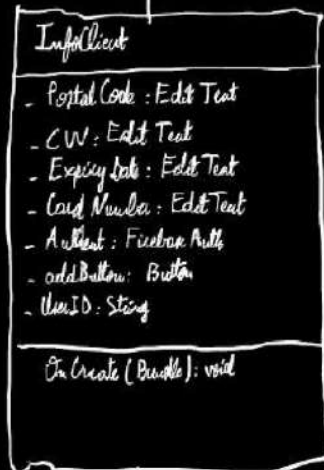 InfoClient
- Postal Code : Edit Text
- CVV : Edit Text
- Expiry Date : Edit Text
- Card Number : Edit Text
- Authent : Firebase Auth
- addButton : Button
- UserID : String
On Create (Bundle) : void